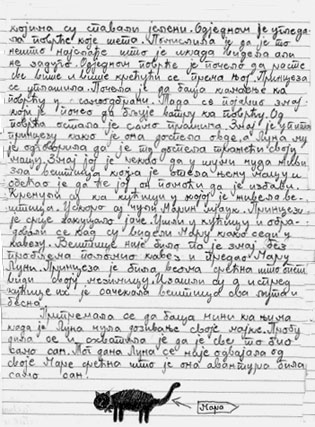 којима су спавали јелени. Одједном је угледа-
ла поврће које шета. Помислила је да је то
нешто најслађе што је икада видела али
не задуго. Одједном поврће је почело да расте
све више и више крећући се према њој. Принцеза
се уплашила. Почела је да баца камење на
поврћу у самоодбрани. Тада се појавио змај
који је почео да бљује ватру на поврћу. Од
поврћа остала је само прашина. Змај је упитао
принцезу како је она доспела овде, а Луна му
је одговорила да је ту доспела тражећи своју
мацу. Змај јој је рекао да у шуми чуда живи
зла вештица која је отела њену мацу и
обећао је да ће јој он помоћи да је избави.
Кренули су ка кућици у којој је живела ве-
штица. Убрзо су чули Марин мјаук. Принцези
је срце закуцало јаче. Ушли у кућицу и обра-
довали се кад су видели Мару како седи у
кавезу. Вештице није било па је змај без
проблема поломио кавез и предао Мару
Луни. Принцеза је била веома срећна што опет
види своју мезимицу. Изашли су а испред
кућице их је сачекала вештица сва љута и
бесна.
Припремала се да баца чини на њима
када је Луна чула дозивање своје мајке. Пробу-
дила се и схватила је да је све то био
само сан. Тог дана Луна се није одвајала од
своје Маре срећна што је она авантура била
само сан.
Мара